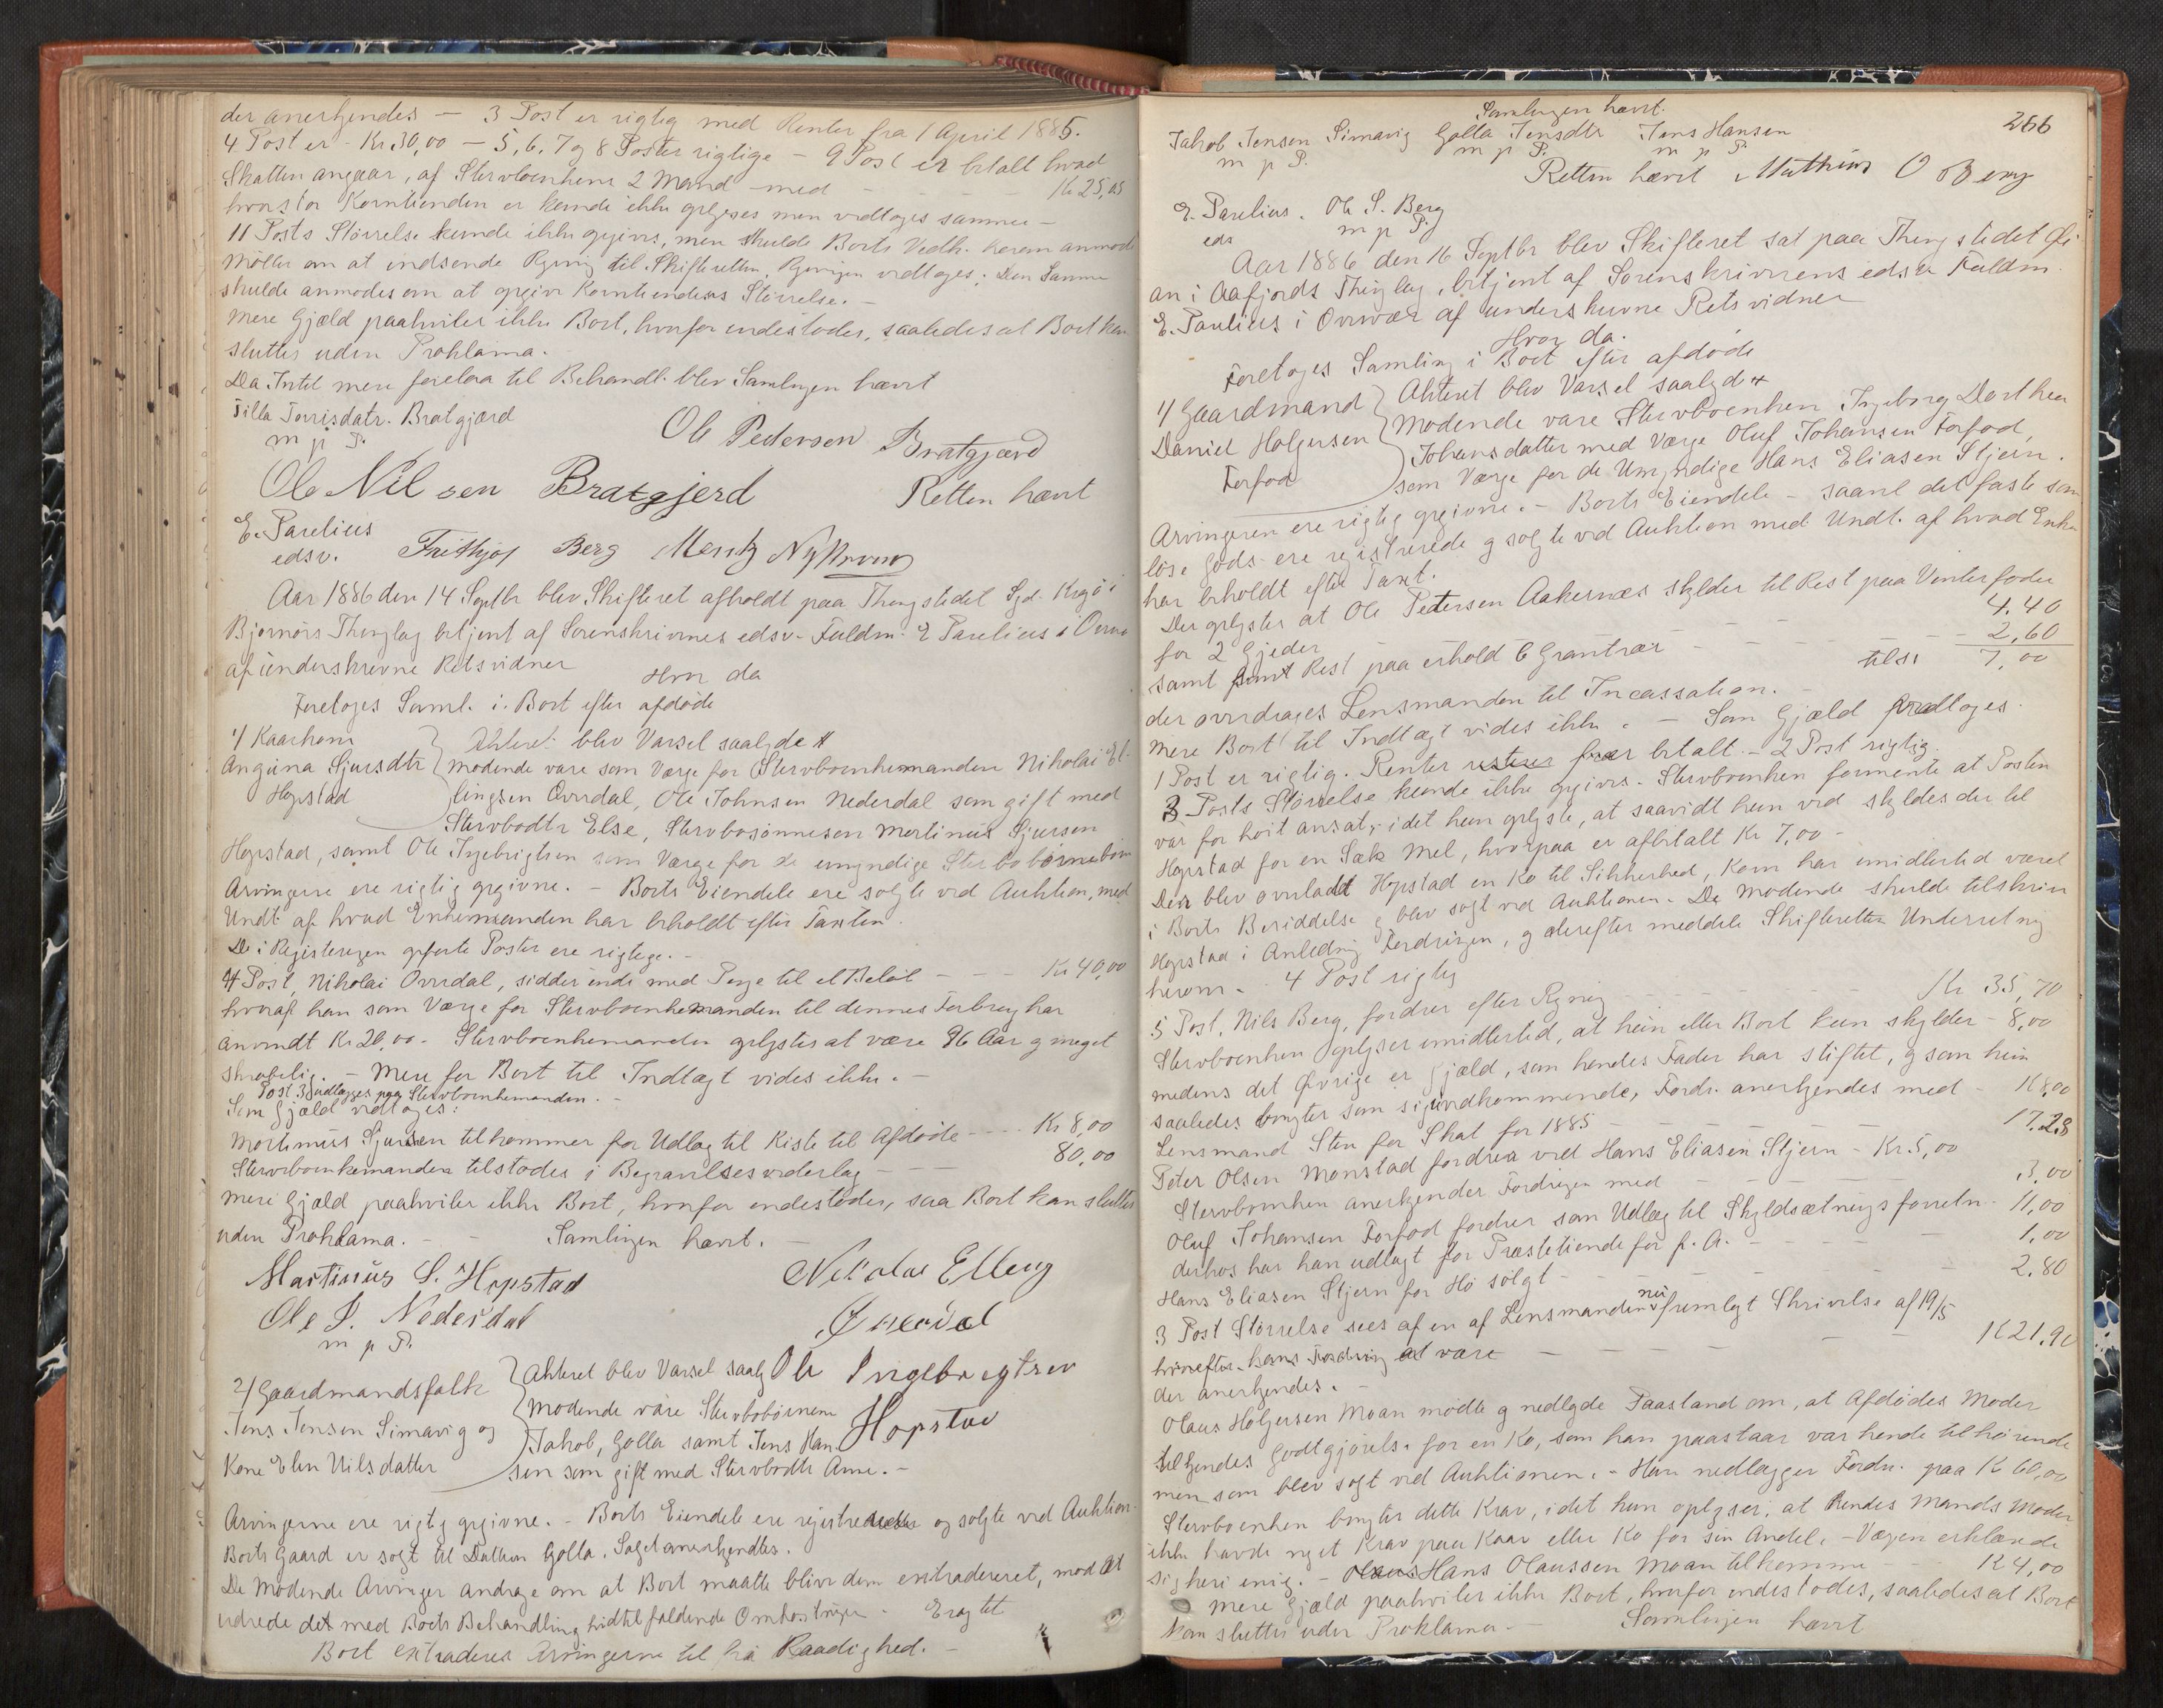 der anerkjendes — 3 Post er rigtig med Renter fra 1 April 1885.
4 Post er - Kr. 30,00 — 5, 6, 7 og 8 Poster rigtige — 9 Post er betalt hvad
Skatten angaar, af Stervboenkens 2 Mand med - - - Kr 25,
Korntienden er kunde ikke oplyses men vedtoges samme —
11 Posts Störrelse kunde ikke opgives, men skulde Boets Vedk. herom anmode
Möller om at indsende Regning til Skifteretten, Regningen vedtoges. Den Samme
skulde anmodes om at opgive Korntiendens Störrelse. —
Mere Gjæld paahviler ikke Boet, hvorfor indestodes, saaledes at Boet kan
sluttes uden Proklama.
Da Intet mere forelaa til Behandl. blev Samlingen hævet
Bratgjærd
m p P.
Ole Pedersen Bratgjærd
Ole Nilsen Bratgjerd
Retten hævet
E. Parelius
edsv.
Frithjof Berg Mentz
Aar 1886 den 14 Septbr blev Skifteret afholdt paa Thingstedet Gd. i
Bjørnørs Thinglag betjent af Sorenskriverens edsv. Fuldm. E Parelius i Overvær
af underskrevne Retsvidner
Hvor da
Foretoges Saml. i Boet efter afdöde
1/ Kaarkone
Angina Sjursdtr
Hopstad
Akteret blev Varsel saalyd #
Mödende vare som Værge for Stervboenkemanden Nikolai El-
lingsen Ovredal, Ole Johnsen Nederdal som gift med
Stervbodtr Else, Stervbosönnesön Martinus Sjursen
Hopstad, samt Ole Ingebrigtsen som Værge for de umyndige Stervbobörnebörn
Arvingerne ere rigtig opgivne. — Boets Eiendele ere solgte ved Auktion, med
Undt. af hvad Enkemanden har erholdt efter Taxten.
De i Registeringen opförte Poster ere rigtige. —
4 Post, Nikolai Ovredal, sidder inde med Penge til et Belöb - - - Kr 40,00
hvoraf han som Værge for Stervboenkemanden til dennes Forbrug har
anvendt Kr 20,00 - Stervboenkemanden oplystes at være 86 Aar og meget
skröbelig. — Mere for Boet til Indtægt vides ikke. —
Post 3 udlægges paa Stervboenkemanden. —
Som Gjæld vedtoges:
Martinus Sjursen tilkommer for Udlæg til Kiste til Afdöde - - - Kr 8,00
Stervboenkemanden tilstodes i Begravelsesvederlag - - - 80,00
Mere Gjæld paahviler ikke Boet, hvorfor indestodes, saa Boet kan sluttes
uden Proklama. — Samlingen hævet.
Martinus S. Hopstad
Nikolai Elling
Ole J. Nederdal
m p P.
Overdal
2/ Gaardmandsfolk
Jens Jensen Simavig og
Kone Elen Nilsdatter
Akteret blev Varsel saaly
Mödende vare Stervbobörnene
Jakob, Golla samt Jens Han-
sen som gift med Stervbodtr Anne. —
Ole Ingebrigtsen
Hopstad
Arvingerne ere rigtig opgivne. — Boets Eiendele ere registrerede og solgte ved Auktion
Boets Gaard er solgt til Datteren Golla. Salget anerkjendtes.
De Mödende Arvinger androge om at Boet maatte blive dem extraderet, mod at
udrede det med Boets Behandling hidtil faldende Omkostninger. Eragtet
Boet extraderes Arvingerne til fri Raadighed. —
266
Samlingen hævet.
Jakob Jensen Simavig Golla Jensdtr Jens Hansen
m p P. m p P. m p P.
Retten hævet
O Berg
E. Parelius. Ole S. Berg
eds m p P.
Aar 1886 den 16 Septbr blev Skifteret sat paa Thingstedet
an i Aafjords Thinglag, betjent af Sorenskriverens edsv Fuldm.
E. Parelius i Overvær af underskrevne Retsvidner
Hvor da.
Foretoges Samling i Boet efter afdöde
1/ Gaardmand
Daniel Holgersen
Forfod
Akteret blev Varsel saalyd #
Mödende vare Stervboenken Ingeborg Dorthea
Johansdatter med Værge Oluf Johansen Forfod,
som Værge for de Umyndige Hans Eliasen Stjern.
Arvingeren ere rigtig opgivne. — Boets Eiendele — saavel det faste som
löse Gods ere registrerede og solgte ved Auktion med Undt. af hvad Enken
har erholdt efter Taxt.
Der oplystes at Ole Petersen Aakernæs skylder til Rest paa Vinterfoder
for 2 Gjeder - - - 4.40
samt Rest paa erhold 6 Grantrær - - - 2,60
tils: 7,00
der overdrages Lensmanden til Incassation.
Mere Boet til Indtægt vides ikke. — Som Gjæld vedtoges.
1 Post er rigtig. Renter betalt — 2 Post rigtig.
3 Posts Störrelse kunde ikke opgives. Stervboenken formente at Posten
var for höit ansat, idet hun oplyste, at saavidt hun ved skyldes der til
Hopstad for en Sæk Mel, hvorpaa er afbetalt Kr 7,00 —
Der blev overladt Hopstad en Ko til Sikkerhed, Koen har imidlertid været
i Boets Besiddelse og blev solgt ved Auktionen. De Mödende skulde tilskrive
Hopstad i Anledning Fordringen, og derefter meddele Skifteretten Underretning
herom. — 4 Post rigtig
5 Post, Nils Berg, fordrer efter Regning - - - Kr 35,70
Stervboenken oplyser imidlertid, at hun eller Boet kun skylder - 8,00
medens det Øvrige er Gjæld, som hendes Fader har stiftet, og som hun
saaledes benægter som sig uvedkommende, Fordr. anerkjendes med - K 8,00
Lensmand Sten for Skat for 1885 - - - 17.28
Peter Olsen Monstad fordrer ved Hans Eliasen Stjern - Kr. 5,00
Stervboenken anerkjender Fordringen med - - - 3,00
Oluf Johansen Forfod fordrer som Udlæg til Skyldsætningsforretn. 11,00
derhos har han udlagt for Præstetiende for f. A. - - - 1,00
Hans Eliasen Stjern for Hö solgt - - - 2.80
3 Post Störrelse sees af en af Lensmanden nu fremlagt Skrivelse af 19/5
hvorefter hans Fordring at være — — — K 21.90
der anerkjendes. —
Olaus Holgersen Moan mödte og nedlagde Paastand om, at Afdödes Moder
tilkjendes Godtgjörelse for en Ko, som han paastaar var hende tilhörende
men som blev solgt ved Auktionen. — Han nedlægger Fordr. paa K 60,00
Stervboenken benægter dette Krav, idet hun oplyser, at hendes Mands Moder
ikke havde noget Krav paa Kaar eller Ko for sin Andel. — Værgen erklærede
sig heri enig. — Hans Olaussen Moan tilkommer - - K 4,00
Mere Gjæld paahviler ikke Boet, hvorfor indestodes, saaledes at Boet
kan sluttes uden Proklama — Samlingen hævet